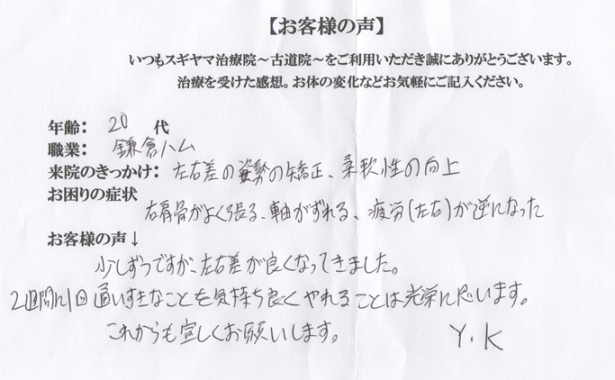 【お客様の声】
いつもスギヤマ治療院～古道院～をご利用いただき誠にありがとうございます。
治療を受けた感想。お体の変化などお気軽にご記入ください。
年齢: 20 代
職業: 鎌倉ハム
来院のきっかけ: 左右差の姿勢の矯正、柔軟性の向上
お困りの症状
右肩骨がよく張る、軸がずれる、疲労(左右)が逆になった
お客様の声↓
少しずつですが、左右差が良くなってきました。
2週間に1回通い好きなことを気持ち良くやれることは光栄に思います。
これからも宜しくお願いします。 Y.K